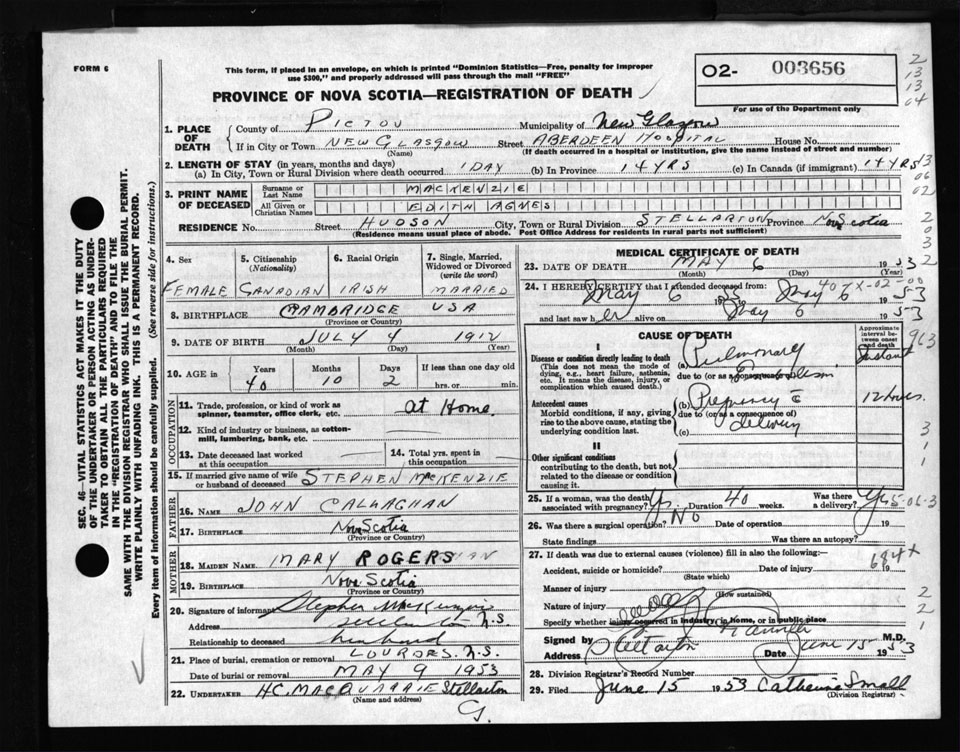 FORM 6
This form, if placed in an envelope, on which is printed "Dominion Statistics—Free, penalty for improper
use $300," and properly addressed will pass through the mail "FREE"
O2- 003656
For use of the Department only
PROVINCE OF NOVA SCOTIA—REGISTRATION OF DEATH
2
13
13
04
1. PLACE OF DEATH
County of PICTOU Municipality of New Glasgow
If in City or Town NEW GLASGOW Street ABERDEEN HOSPITAL House No.
(Name) (If death occurred in a hospital or institution, give the name instead of street and number)
2. LENGTH OF STAY (in years, months and days)
(a) In City, Town or Rural Division where death occurred 1 DAY (b) In Province 14 YRS (c) In Canada (if immigrant) 14 YRS
13
06
02
3. PRINT NAME OF DECEASED
Surname or Last Name MACKENZIE
All Given or Christian Names EDITH AGNES
RESIDENCE No. Street HUDSON City, Town or Rural Division STELLARTON Province Nova Scotia
(Residence means usual place of abode. Post Office Address for residents in rural parts not sufficient)
2
0
3
2
4. Sex
FEMALE
5. Citizenship (Nationality)
CANADIAN
6. Racial Origin
IRISH
7. Single, Married, Widowed or Divorced (write the word)
MARRIED
8. BIRTHPLACE CAMBRIDGE USA
(Province or Country)
9. DATE OF BIRTH JULY 4 1912
(Month) (Day) (Year)
10. AGE in Years Months Days If less than one day old
40 10 2 hrs. or min.
OCCUPATION
11. Trade, profession, or kind of work as spinner, teamster, office clerk, etc. At Home.
12. Kind of industry or business, as cotton-mill, lumbering, bank, etc.
13. Date deceased last worked at this occupation
14. Total yrs. spent in this occupation
15. If married give name of wife or husband of deceased STEPHEN MACKENZIE
FATHER
16. NAME JOHN CALLAGHAN
17. BIRTHPLACE Nova Scotia
(Province or Country)
MOTHER
18. MAIDEN NAME MARY ROGERS
19. BIRTHPLACE Nova Scotia
(Province or Country)
20. Signature of informant Stephen MacKenzie
Address Stellarton N.S.
Relationship to deceased husband
21. Place of burial, cremation or removal LOURDES. N.S.
Date of burial or removal MAY 9 1953
22. UNDERTAKER H.C. MACQUARRIE Stellarton
(Name and address)
G.
MEDICAL CERTIFICATE OF DEATH
23. DATE OF DEATH MAY 6 1953
(Month) (Day) (Year)
24. I HEREBY CERTIFY that I attended deceased from:
407X-02-00
May 6 1953 to May 6 1953
and last saw her alive on May 6 1953
CAUSE OF DEATH
Approximate interval between onset and death
963
I
Disease or condition directly leading to death
(This does not mean the mode of dying, e.g., heart failure, asthenia, etc. It means the disease, injury, or complication which caused death.)
(a) Pulmonary Embolism Instant
due to (or as a consequence of)
Antecedent causes
Morbid conditions, if any, giving rise to the above cause, stating the underlying condition last.
(b) Pregnancy c̄ delivery 12 hours.
due to (or as a consequence of)
(c)
3
1
1
II
Other significant conditions
contributing to the death, but not related to the disease or condition causing it.
25. If a woman, was the death associated with pregnancy? Yes Duration 40 weeks. Was there a delivery? Yes
45-06-3
26. Was there a surgical operation? NO Date of operation 19
State findings Was there an autopsy?
27. If death was due to external causes (violence) fill in also the following:—
684X
Accident, suicide or homicide? Date of injury 19
(State which)
Manner of injury
(How sustained)
Nature of injury
Specify whether injury occurred in industry, in home, or in public place
2
2
1
Signed by M.D.
Address Stellarton Date June 15 1953
28. Division Registrar's Record Number
29. Filed June 15 1953 Catherine Small
(Division Registrar)
SEC. 46—VITAL STATISTICS ACT MAKES IT THE DUTY
OF THE UNDERTAKER OR PERSON ACTING AS UNDER-
TAKER TO OBTAIN ALL THE PARTICULARS REQUIRED
IN THE "REGISTRATION OF DEATH" AND TO FILE THE
SAME WITH THE DIVISION REGISTRAR WHO SHALL ISSUE THE BURIAL PERMIT.
WRITE PLAINLY WITH UNFADING INK. THIS IS A PERMANENT RECORD.
Every item of information should be carefully supplied. (See reverse side for instructions.)